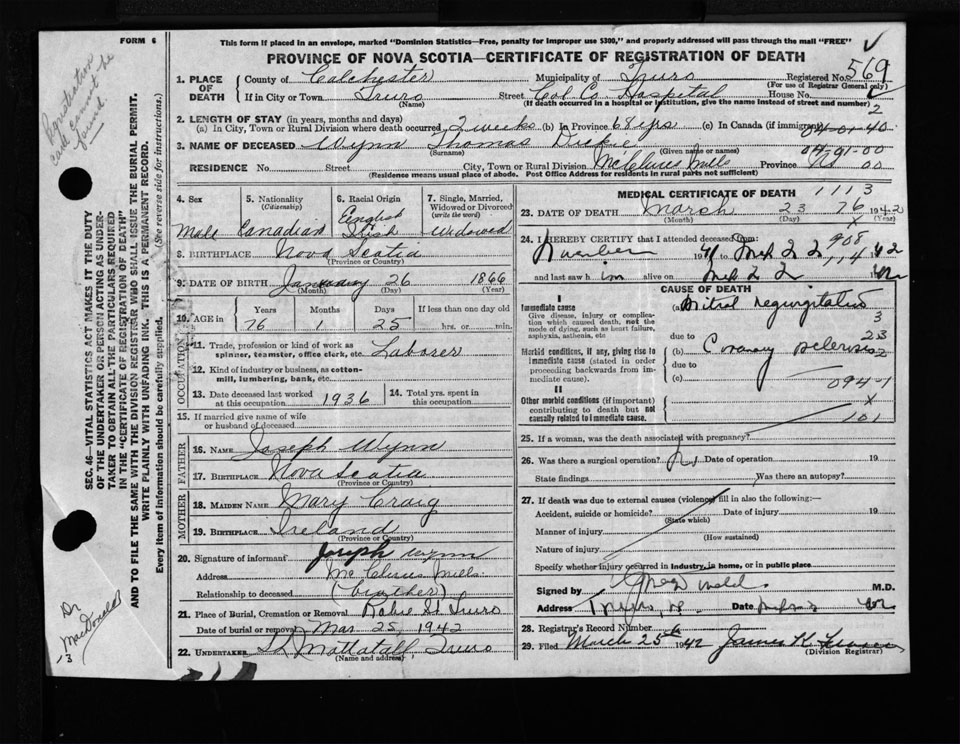 FORM 6
This form if placed in an envelope, marked "Dominion Statistics—Free, penalty for improper use $300," and properly addressed will pass through the mail "FREE"
PROVINCE OF NOVA SCOTIA—CERTIFICATE OF REGISTRATION OF DEATH
Registration card cannot be found
SEC. 46—VITAL STATISTICS ACT MAKES IT THE DUTY
OF THE UNDERTAKER OR PERSON ACTING AS UNDER-
TAKER TO OBTAIN ALL THE PARTICULARS REQUIRED
IN THE "CERTIFICATE OF REGISTRATION OF DEATH"
AND TO FILE THE SAME WITH THE DIVISION REGISTRAR WHO SHALL ISSUE THE BURIAL PERMIT.
WRITE PLAINLY WITH UNFADING INK. THIS IS A PERMANENT RECORD.
Every item of information should be carefully supplied. (See reverse side for instructions.)
Dr MacDonald
13
1. PLACE OF DEATH
County of Colchester Municipality of Truro Registered No. 569
(For use of Registrar General only)
If in City or Town Truro Street Col. Co. Hospital House No.
(Name) (If death occurred in a hospital or institution, give the name instead of street and number)
2
2. LENGTH OF STAY (in years, months and days)
(a) In City, Town or Rural Division where death occurred 2 weeks (b) In Province 68 yrs (c) In Canada (if immigrant)
04-01-40
3. NAME OF DECEASED Wynn Thomas Dickie 04-91-00
(Surname) (Given name or names)
RESIDENCE No. Street City, Town or Rural Division McClures Mills Province NS 00
(Residence means usual place of abode. Post Office Address for residents in rural parts not sufficient)
4. Sex Male
5. Nationality (Citizenship) Canadian
6. Racial Origin English Irish
7. Single, Married, Widowed or Divorced (write the word) Widowed
8. BIRTHPLACE Nova Scotia
(Province or Country)
9. DATE OF BIRTH January 26 1866
(Month) (Day) (Year)
10. AGE in Years Months Days If less than one day old
76 1 25 hrs. or min.
OCCUPATION
11. Trade, profession or kind of work as Laborer
spinner, teamster, office clerk, etc.
12. Kind of industry or business, as cotton-
mill, lumbering, bank, etc.
13. Date deceased last worked at this occupation 1936
14. Total yrs. spent in this occupation
15. If married give name of wife
or husband of deceased
FATHER
16. NAME Joseph Wynn
17. BIRTHPLACE Nova Scotia
(Province or Country)
MOTHER
18. MAIDEN NAME Mary Craig
19. BIRTHPLACE Ireland
(Province or Country)
20. Signature of informant Joseph Wynn
Address McClures Mills
Relationship to deceased (brother)
21. Place of Burial, Cremation or Removal Robie St Truro
Date of burial or removal Mar. 25 1942
22. UNDERTAKER Mattatall, Truro
(Name and address)
MEDICAL CERTIFICATE OF DEATH 1113
23. DATE OF DEATH March 23 76 1942
(Month) (Day) (Year)
x
24. I HEREBY CERTIFY that I attended deceased from: 908
1941 to Mch 22 114 1942
and last saw him alive on Mch 22 1942
CAUSE OF DEATH
I
Immediate cause
Give disease, injury or complica-
tion which caused death, not the
mode of dying, such as heart failure,
asphyxia, asthenia, etc
(a) Mitral regurgitation
3
due to 23
Morbid conditions, if any, giving rise to
immediate cause (stated in order
proceeding backwards from im-
mediate cause).
(b) Coronary sclerosis 2
due to
(c) 094-1
II
Other morbid conditions (if important)
contributing to death but not
causally related to immediate cause.
x
101
25. If a woman, was the death associated with pregnancy?
26. Was there a surgical operation? No Date of operation 19
State findings Was there an autopsy?
27. If death was due to external causes (violence) fill in also the following:—
Accident, suicide or homicide? Date of injury 19
(State which)
Manner of injury
(How sustained)
Nature of injury
Specify whether injury occurred in industry, in home, or in public place
Signed by M.D.
Address Truro, NS Date
28. Registrar's Record Number 6
29. Filed March 25th 1942 James K.
(Division Registrar)